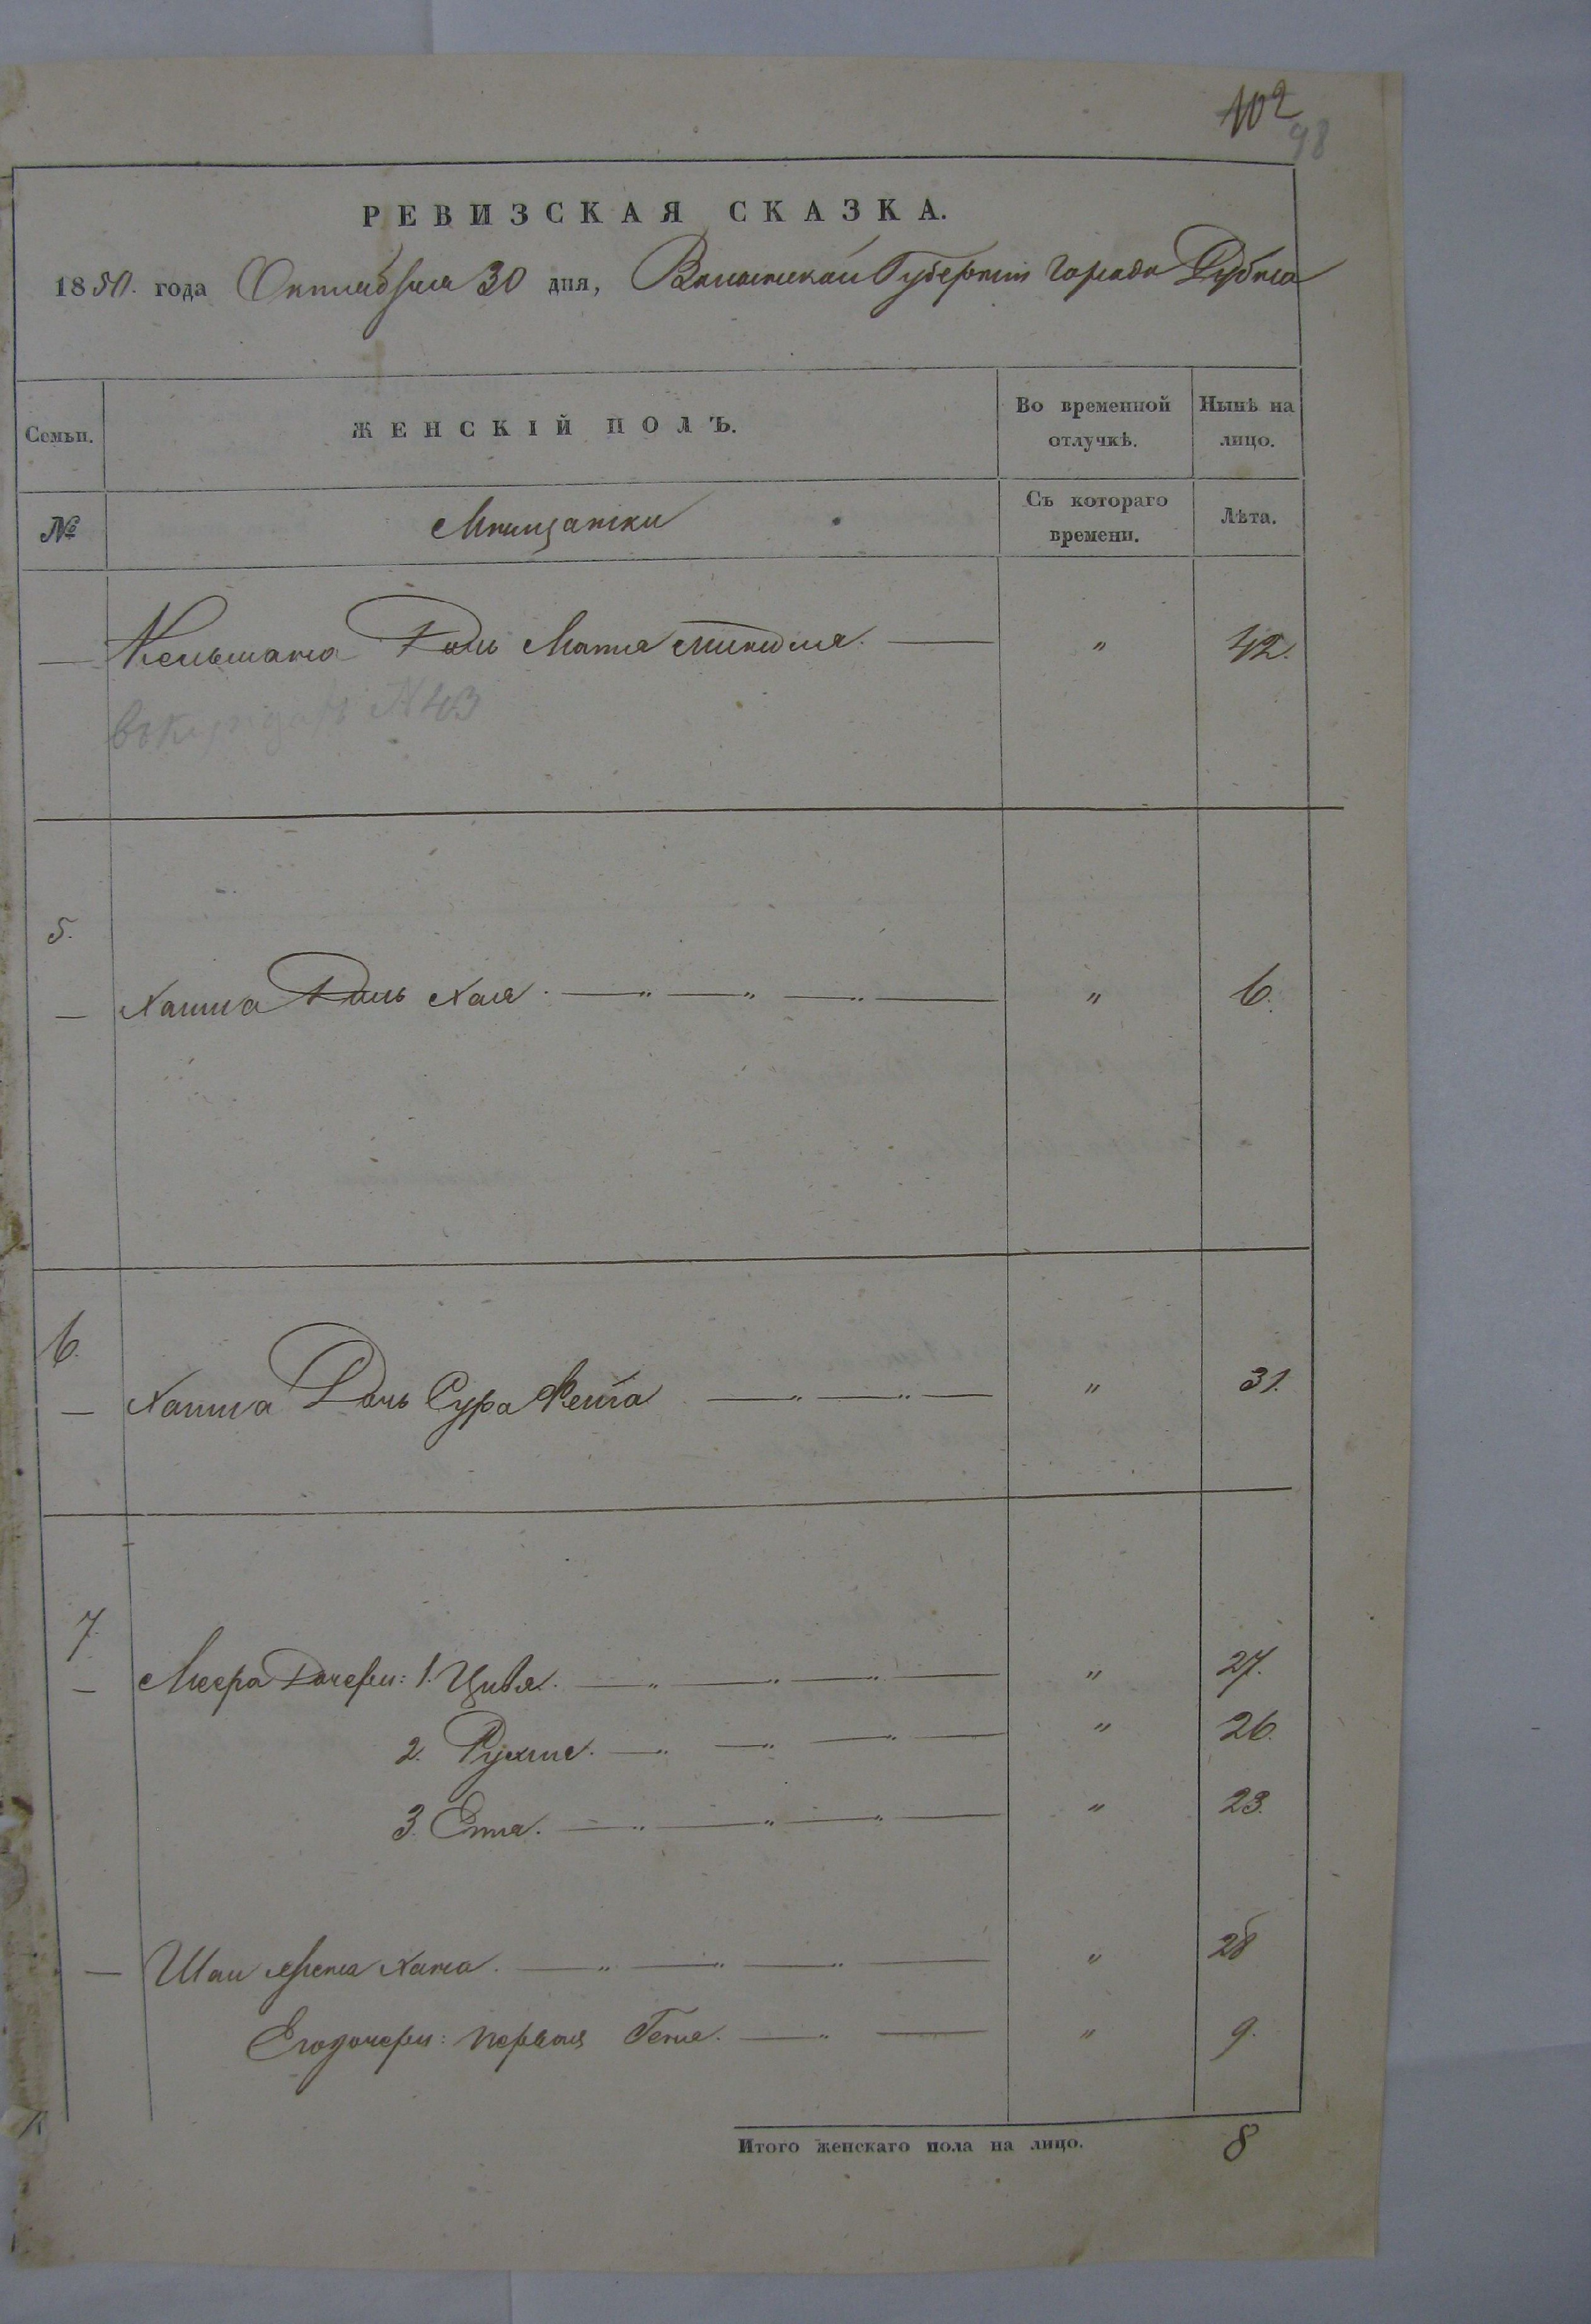 102
98
РЕВИЗСКАЯ СКАЗКА.
1850. года Октября 30 дня, Волынской Губернии города Дубна
Семьи.
ЖЕНСКІЙ ПОЛЪ.
Во временной отлучкѣ.
Нынѣ на лицо.
№
Мѣщанки
Съ котораго времени.
Лѣта.
— Кельмана Дочь " 42.
№ 43
5.
— Хаима Дочь Хая. — " — " — " — " 6.
6.
— Хаима Дочь Сура Фейга — " — " — " 31.
7.
— Меера Дочери: 1. Цивя. — " — " — " — " 27.
2. Рухля. — " — " — " — " 26.
3. — " — " — " — " 23.
— Жена Хана. — " — " — " — " 28
Его дочери: первая Геня. — " — " 9.
Итого женскаго пола на лицо. 8